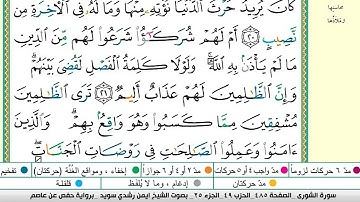 كَانَ يُرِيدُ حَرْثَ الدُّنْيَا نُؤْتِهِ مِنْهَا وَمَا لَهُ فِي الْآخِرَةِ مِن
نَّصِيبٍ ۝٢٠ أَمْ لَهُمْ شُرَكَٰٓؤُا۟ شَرَعُوا لَهُم مِّنَ الدِّينِ
مَا لَمْ يَأْذَنۢ بِهِ اللَّهُ ۚ وَلَوْلَا كَلِمَةُ الْفَصْلِ لَقُضِيَ بَيْنَهُمْ ۗ
وَإِنَّ الظَّٰلِمِينَ لَهُمْ عَذَابٌ أَلِيمٌ ۝٢١ تَرَى الظَّٰلِمِينَ
مُشْفِقِينَ مِمَّا كَسَبُوا وَهُوَ وَاقِعٌۢ بِهِمْ ۗ وَالَّذِينَ
ءَامَنُوا وَعَمِلُوا الصَّٰلِحَٰتِ فِي رَوْضَاتِ الْجَنَّاتِ ۖ
مدّ ٦ حركات لزوماً مدّ واجب ٤ أو ٥ حركات مدّ ٢ أو ٤ أو ٦ جوازاً إخفاء، ومواقع الغُنَّة (حركتان) تفخيم
مدّ حركتان إدغام، وما لا يُلفَظ قلقلة
سورة الشورى _الصفحة ٤٨٥ _الحزب ٤٩ _الجزء ٢٥ _ بصوت الشيخ ايمن رشدي سويد _برواية حفص عن عاصم